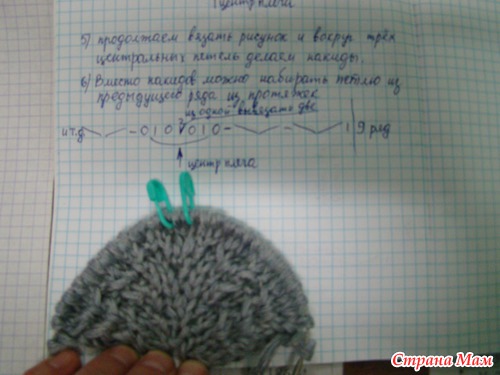 центр плеча
5) продолжаем вязать рисунок и вокруг трёх
центральных петель делаем накиды.
6) Вместо накидов можно набирать петлю из
предыдущего ряда из протяжек
из одной вывязать две
и т.д. - 0 1 0 1 0 1 0 - - 1 9 ряд
центр плеча
Страна Мам